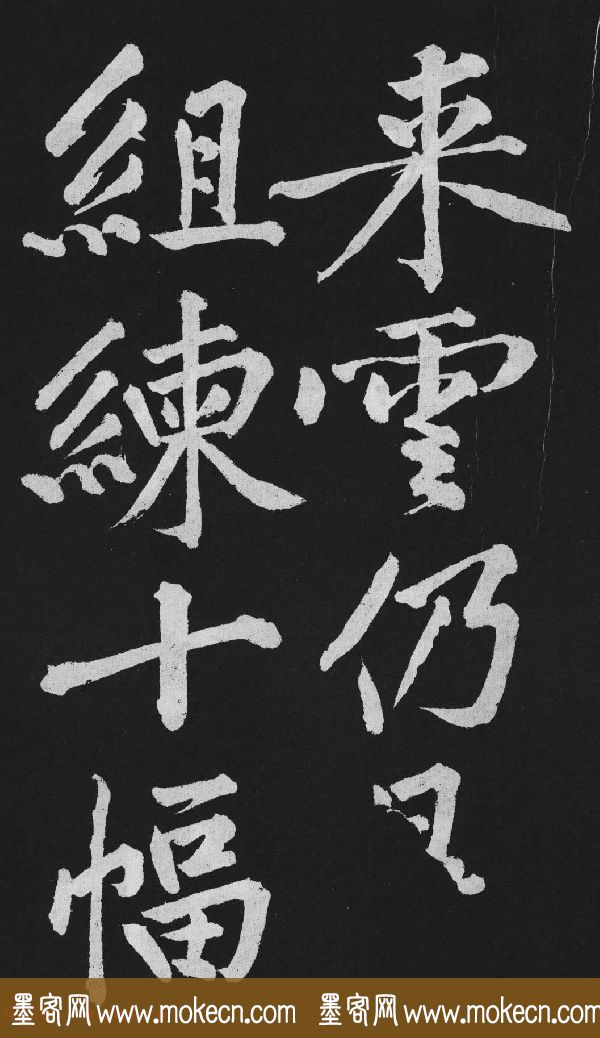 来雲仍
組練十幅
墨客网 www.mokecn.com 墨客网 www.mokecn.com